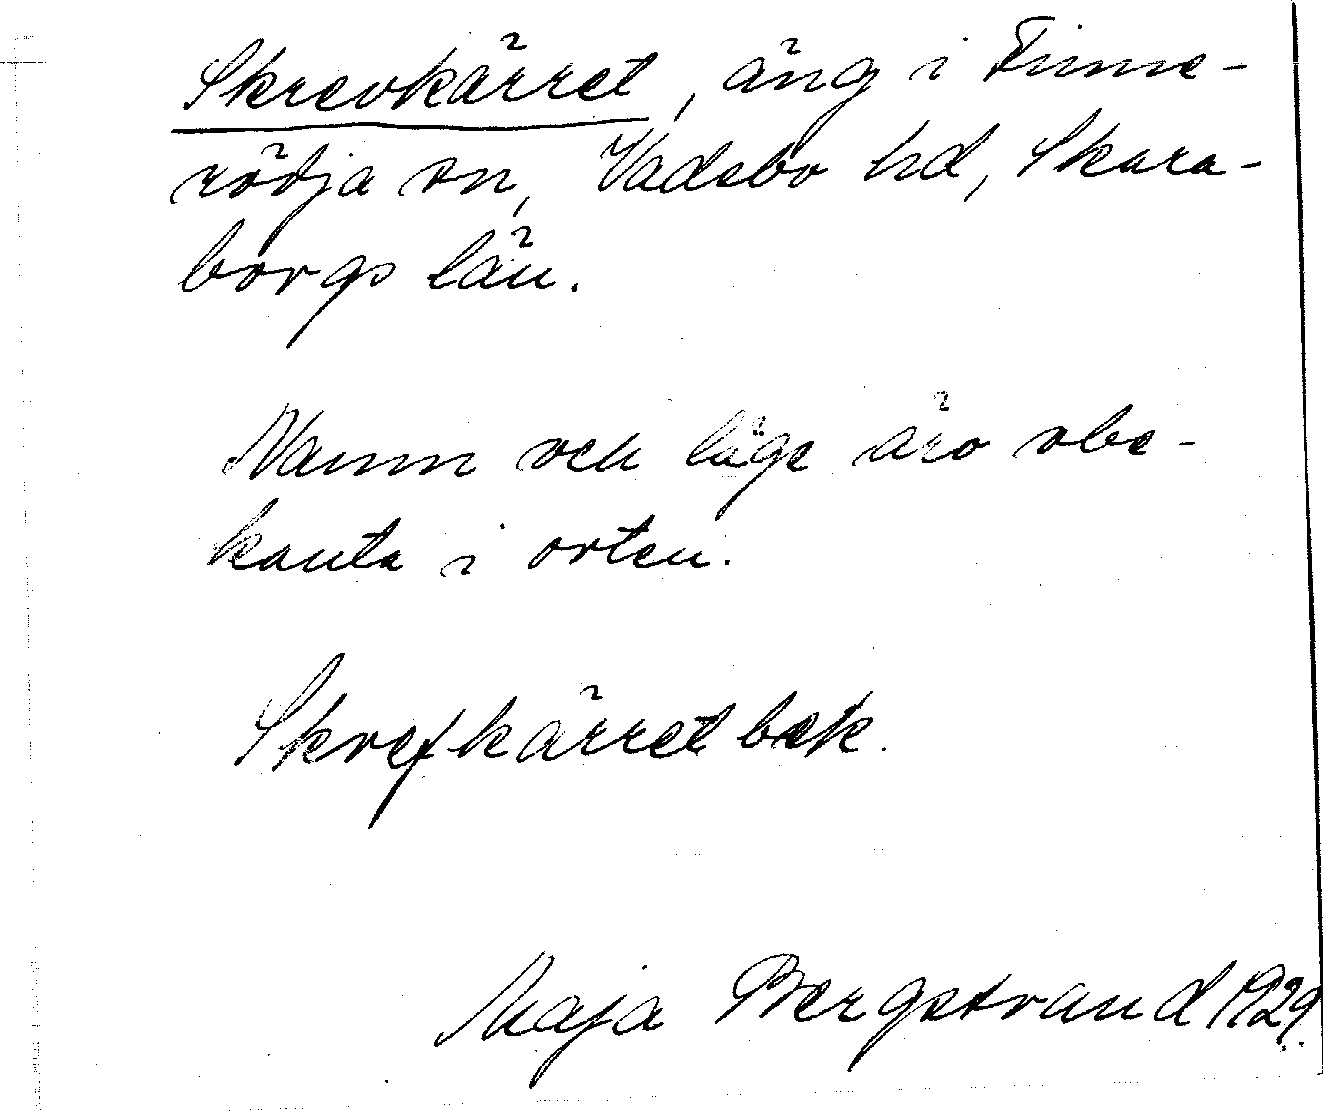 Skrevkärret, äng i Finne-
rödja sn, Vadsbo hd, Skara-
borgs län.
Namn och läge äro obe-
kanta i orten.
Skrefkärret bek.
Maja Bergstrand 1929.